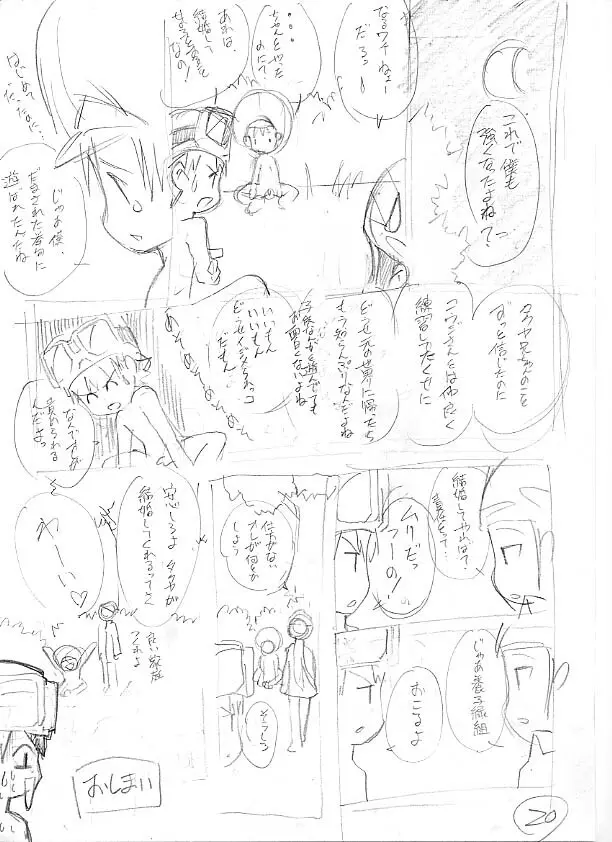 これで僕も
強くなたよね？
なるワケねー
だろっ！
・・・
ちゃんとやった
のにー
あれは
結婚して
なの！
はじめて
だったのに…
じゃあ僕、
だまされた
遊ばれたんだね
タクヤ兄ちゃんのこと
ずっと信じてたのに
コウジさんとは仲良く
練習してたくせに
どうせ元の世界に帰ったら
もう知らんぷりなんだよね
お面白くないよね
いいもん
いいもん
だもん
めーそめーそめそ
なんでオレが
責められる
んだよっ
結婚しちゃえば？
責任とって
ムリだっ
つーの！
じゃあ養子縁組
おこるよ
仕方ない
オレが何とか
しよう
そうしろ
安心しろよ タクヤが
結婚してくれるってさ
わーい♡
良い家庭
つくれよ
おしまい
20